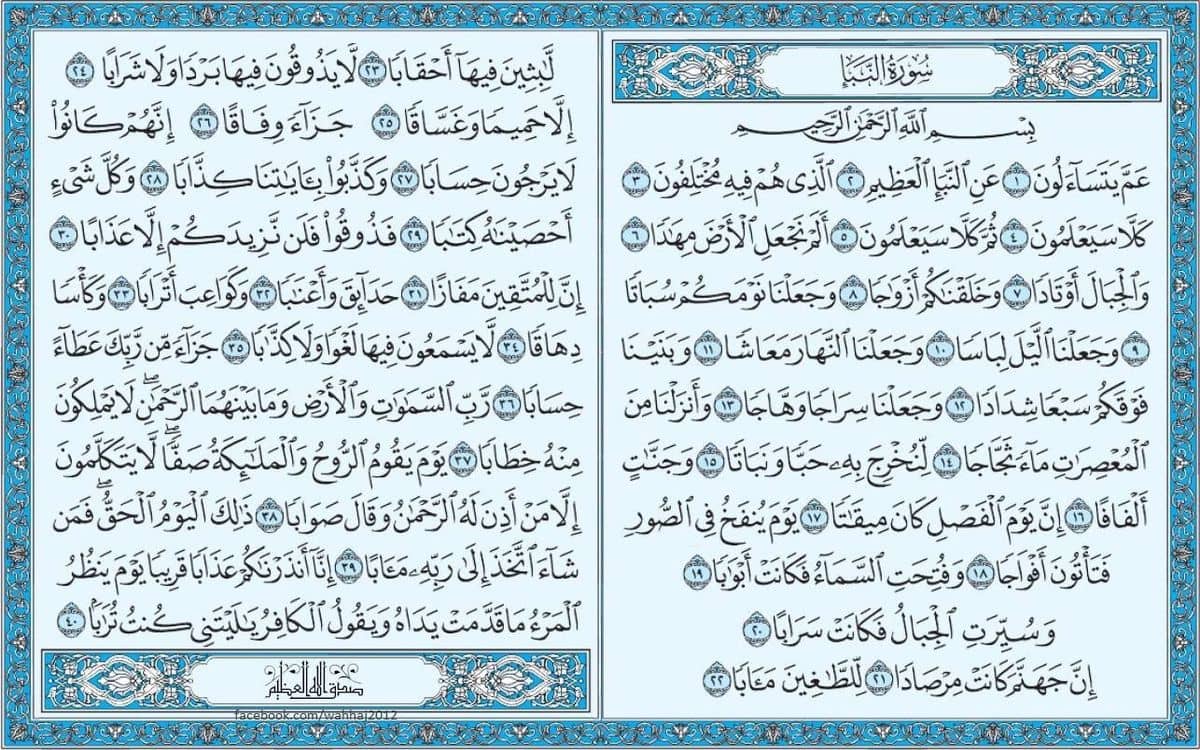 سُورَةُ النَّبَإِ
بِسْمِ ٱللَّهِ ٱلرَّحْمَٰنِ ٱلرَّحِيمِ
عَمَّ يَتَسَآءَلُونَ ١ عَنِ ٱلنَّبَإِ ٱلْعَظِيمِ ٢ ٱلَّذِى هُمْ فِيهِ مُخْتَلِفُونَ ٣
كَلَّا سَيَعْلَمُونَ ٤ ثُمَّ كَلَّا سَيَعْلَمُونَ ٥ أَلَمْ نَجْعَلِ ٱلْأَرْضَ مِهَٰدًا ٦
وَٱلْجِبَالَ أَوْتَادًا ٧ وَخَلَقْنَٰكُمْ أَزْوَٰجًا ٨ وَجَعَلْنَا نَوْمَكُمْ سُبَاتًا
٩ وَجَعَلْنَا ٱلَّيْلَ لِبَاسًا ١٠ وَجَعَلْنَا ٱلنَّهَارَ مَعَاشًا ١١ وَبَنَيْنَا
فَوْقَكُمْ سَبْعًا شِدَادًا ١٢ وَجَعَلْنَا سِرَاجًا وَهَّاجًا ١٣ وَأَنزَلْنَا مِنَ
ٱلْمُعْصِرَٰتِ مَآءً ثَجَّاجًا ١٤ لِّنُخْرِجَ بِهِۦ حَبًّا وَنَبَاتًا ١٥ وَجَنَّٰتٍ
أَلْفَافًا ١٦ إِنَّ يَوْمَ ٱلْفَصْلِ كَانَ مِيقَٰتًا ١٧ يَوْمَ يُنفَخُ فِى ٱلصُّورِ
فَتَأْتُونَ أَفْوَاجًا ١٨ وَفُتِحَتِ ٱلسَّمَآءُ فَكَانَتْ أَبْوَٰبًا ١٩
وَسُيِّرَتِ ٱلْجِبَالُ فَكَانَتْ سَرَابًا ٢٠
إِنَّ جَهَنَّمَ كَانَتْ مِرْصَادًا ٢١ لِّلطَّٰغِينَ مَـَٔابًا ٢٢
لَّٰبِثِينَ فِيهَآ أَحْقَابًا ٢٣ لَّا يَذُوقُونَ فِيهَا بَرْدًا وَلَا شَرَابًا ٢٤
إِلَّا حَمِيمًا وَغَسَّاقًا ٢٥ جَزَآءً وِفَاقًا ٢٦ إِنَّهُمْ كَانُوا۟
لَا يَرْجُونَ حِسَابًا ٢٧ وَكَذَّبُوا۟ بِـَٔايَٰتِنَا كِذَّابًا ٢٨ وَكُلَّ شَىْءٍ
أَحْصَيْنَٰهُ كِتَٰبًا ٢٩ فَذُوقُوا۟ فَلَن نَّزِيدَكُمْ إِلَّا عَذَابًا ٣٠
إِنَّ لِلْمُتَّقِينَ مَفَازًا ٣١ حَدَآئِقَ وَأَعْنَٰبًا ٣٢ وَكَوَاعِبَ أَتْرَابًا ٣٣ وَكَأْسًا
دِهَاقًا ٣٤ لَّا يَسْمَعُونَ فِيهَا لَغْوًا وَلَا كِذَّٰبًا ٣٥ جَزَآءً مِّن رَّبِّكَ عَطَآءً
حِسَابًا ٣٦ رَّبِّ ٱلسَّمَٰوَٰتِ وَٱلْأَرْضِ وَمَا بَيْنَهُمَا ٱلرَّحْمَٰنِ ۖ لَا يَمْلِكُونَ
مِنْهُ خِطَابًا ٣٧ يَوْمَ يَقُومُ ٱلرُّوحُ وَٱلْمَلَٰٓئِكَةُ صَفًّا ۖ لَّا يَتَكَلَّمُونَ
إِلَّا مَنْ أَذِنَ لَهُ ٱلرَّحْمَٰنُ وَقَالَ صَوَابًا ٣٨ ذَٰلِكَ ٱلْيَوْمُ ٱلْحَقُّ ۖ فَمَن
شَآءَ ٱتَّخَذَ إِلَىٰ رَبِّهِۦ مَـَٔابًا ٣٩ إِنَّآ أَنذَرْنَٰكُمْ عَذَابًا قَرِيبًا يَوْمَ يَنظُرُ
ٱلْمَرْءُ مَا قَدَّمَتْ يَدَاهُ وَيَقُولُ ٱلْكَافِرُ يَٰلَيْتَنِى كُنتُ تُرَٰبًۢا ٤٠
صدق الله العظيم
facebook.com/wahhaj2012